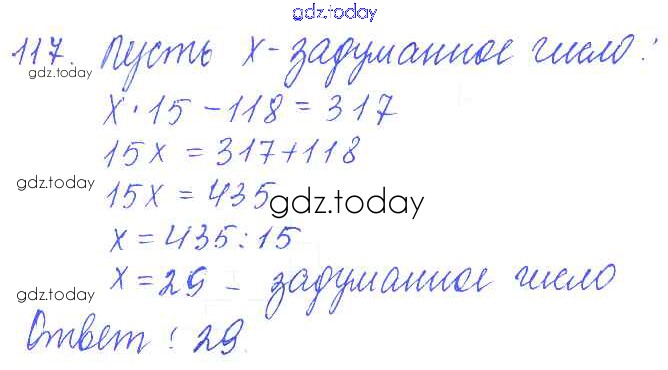 gdz.today
117. Пусть x - задуманное число:
gdz.today
x · 15 - 118 = 317
15x = 317 + 118
gdz.today
15x = 435
gdz.today
x = 435 : 15
x = 29 - задуманное число
gdz.today
Ответ: 29.